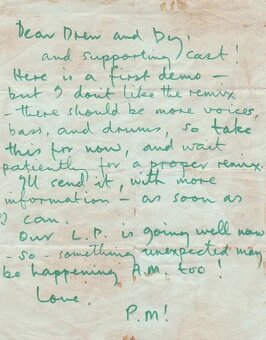 Dear Drew and Dy,
and supporting cast!
Here is a first demo –
but I don't like the remix
– there should be more voices,
bass, and drums, so take
this for now, and wait
patiently for a proper remix.
I'll send it, with more
information – as soon as
I can.
Our L.P. is going well now
– so – something unexpected may
be happening A.M. too!
Love.
P.M!